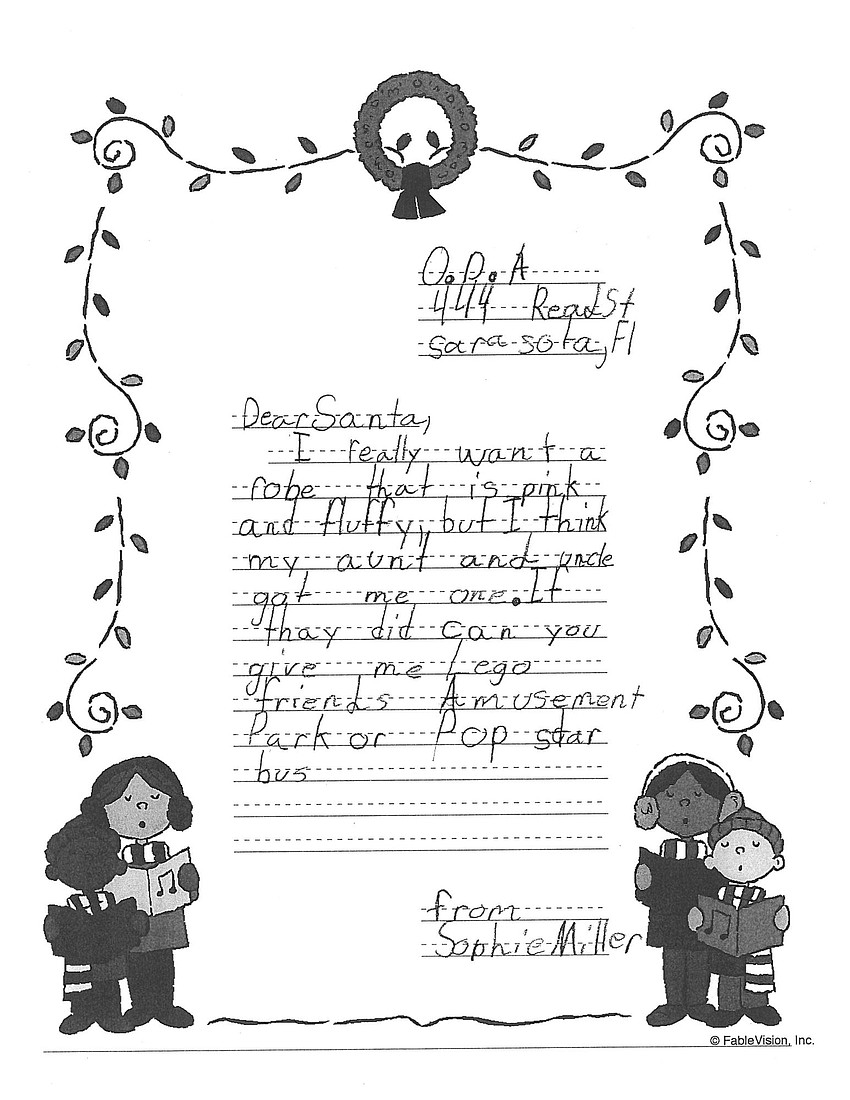 O.D.A
444 Read St
sarasota, Fl
Dear Santa,
I really want a
robe that is pink
and fluffy, but I think
my aunt and uncle
got me one. If
thay did can you
give me Lego
friends Amusement
Park or Pop star
bus
from
Sophie Miller
© FableVision, Inc.